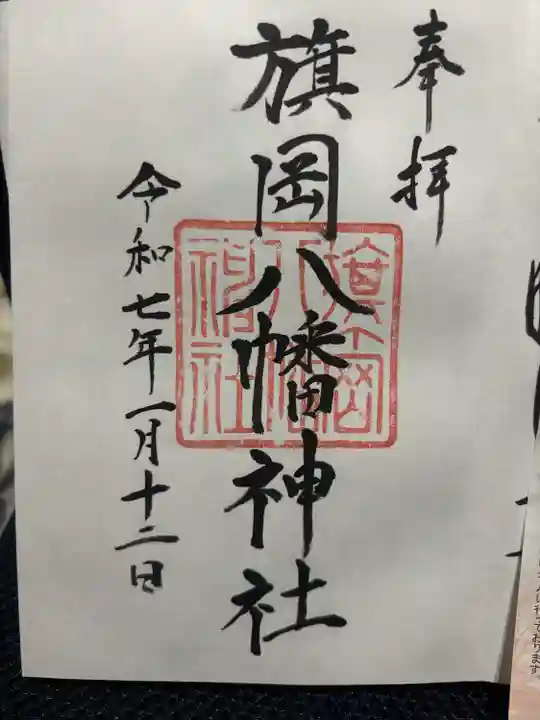 奉拝
旗岡八幡神社
令和七年一月十二日
旗岡
八幡
神社